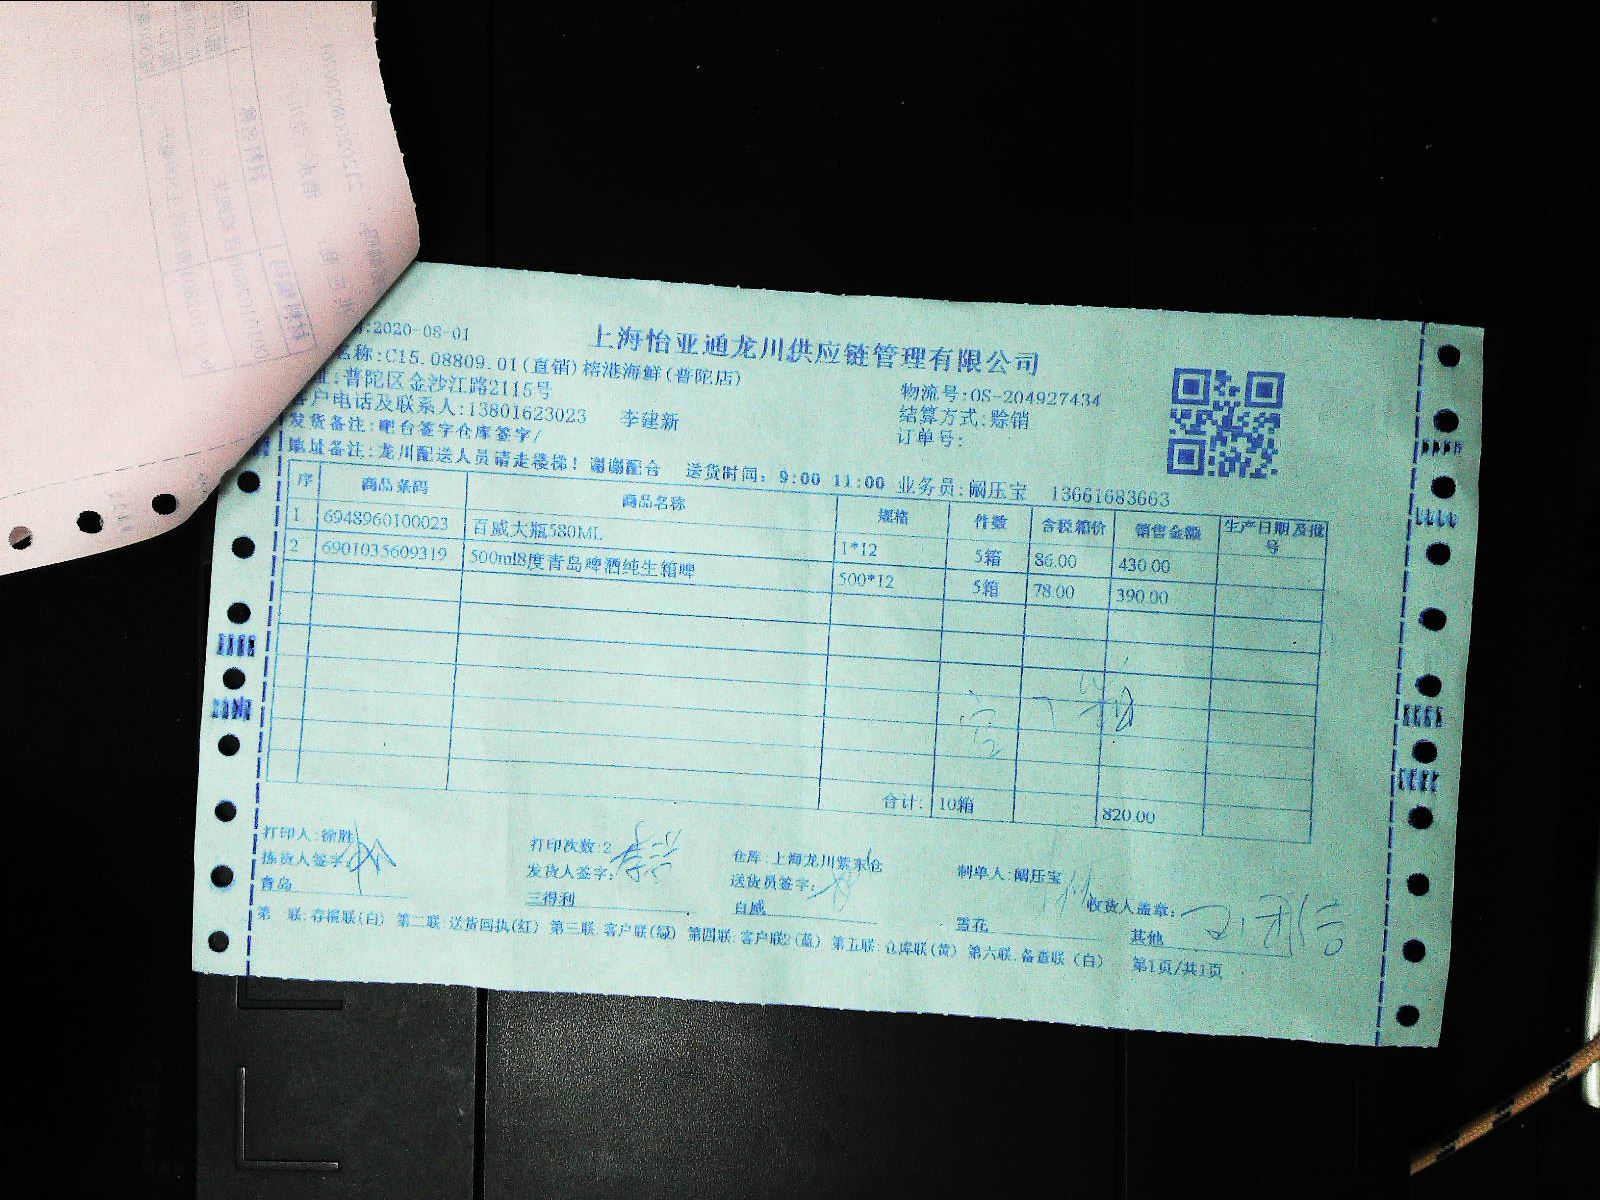 :2020-08-01
上海怡亚通龙川供应链管理有限公司
名称:C15.08809.01(直销)榕港海鲜(普陀店)
址:普陀区金沙江路2115号
物流号:OS-204927434
客户电话及联系人:13801623023 李建新
结算方式:赊销
发货备注:吧台签字仓库签字/
订单号:
地址备注:龙川配送人员请走楼梯！谢谢配合 送货时间: 9:00 11:00 业务员:阚压宝 13661683663
序 商品条码 商品名称 规格 件数 含税箱价 销售金额 生产日期及批号
1 6948960100023 百威大瓶580ML 1*12 5箱 86.00 430.00
2 6901035609319 500ml8度青岛啤酒纯生箱啤 500*12 5箱 78.00 390.00
合计: 10箱 820.00
打印人:徐胜 打印次数:2 仓库:上海龙川紫东仓 制单人:阚压宝
拣货人签字: 发货人签字: 送货员签字: 收货人盖章:
青岛 三得利 百威 雪花 其他
第一联:存根联(白) 第二联:送货回执(红) 第三联:客户联(绿) 第四联:客户联2(蓝) 第五联:仓库联(黄) 第六联:备查联(白) 第1页/共1页